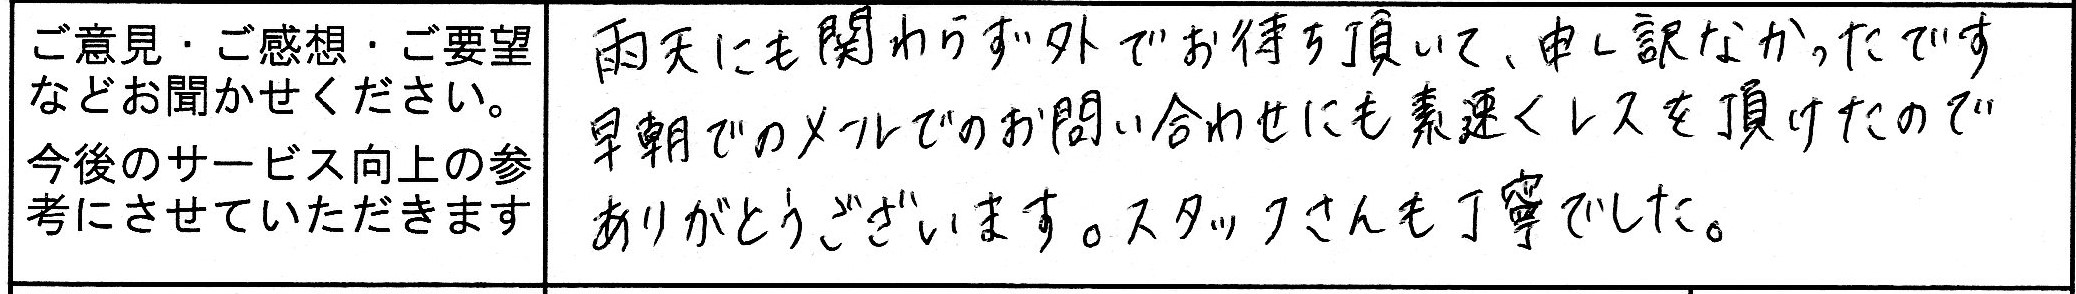 ご意見・ご感想・ご要望
などお聞かせください。
今後のサービス向上の参
考にさせていただきます
雨天にも関わらず外でお待ち頂いて、申し訳なかったです
早朝でのメールでのお問い合わせにも素速くレスを頂けたので
ありがとうございます。スタッフさんも丁寧でした。